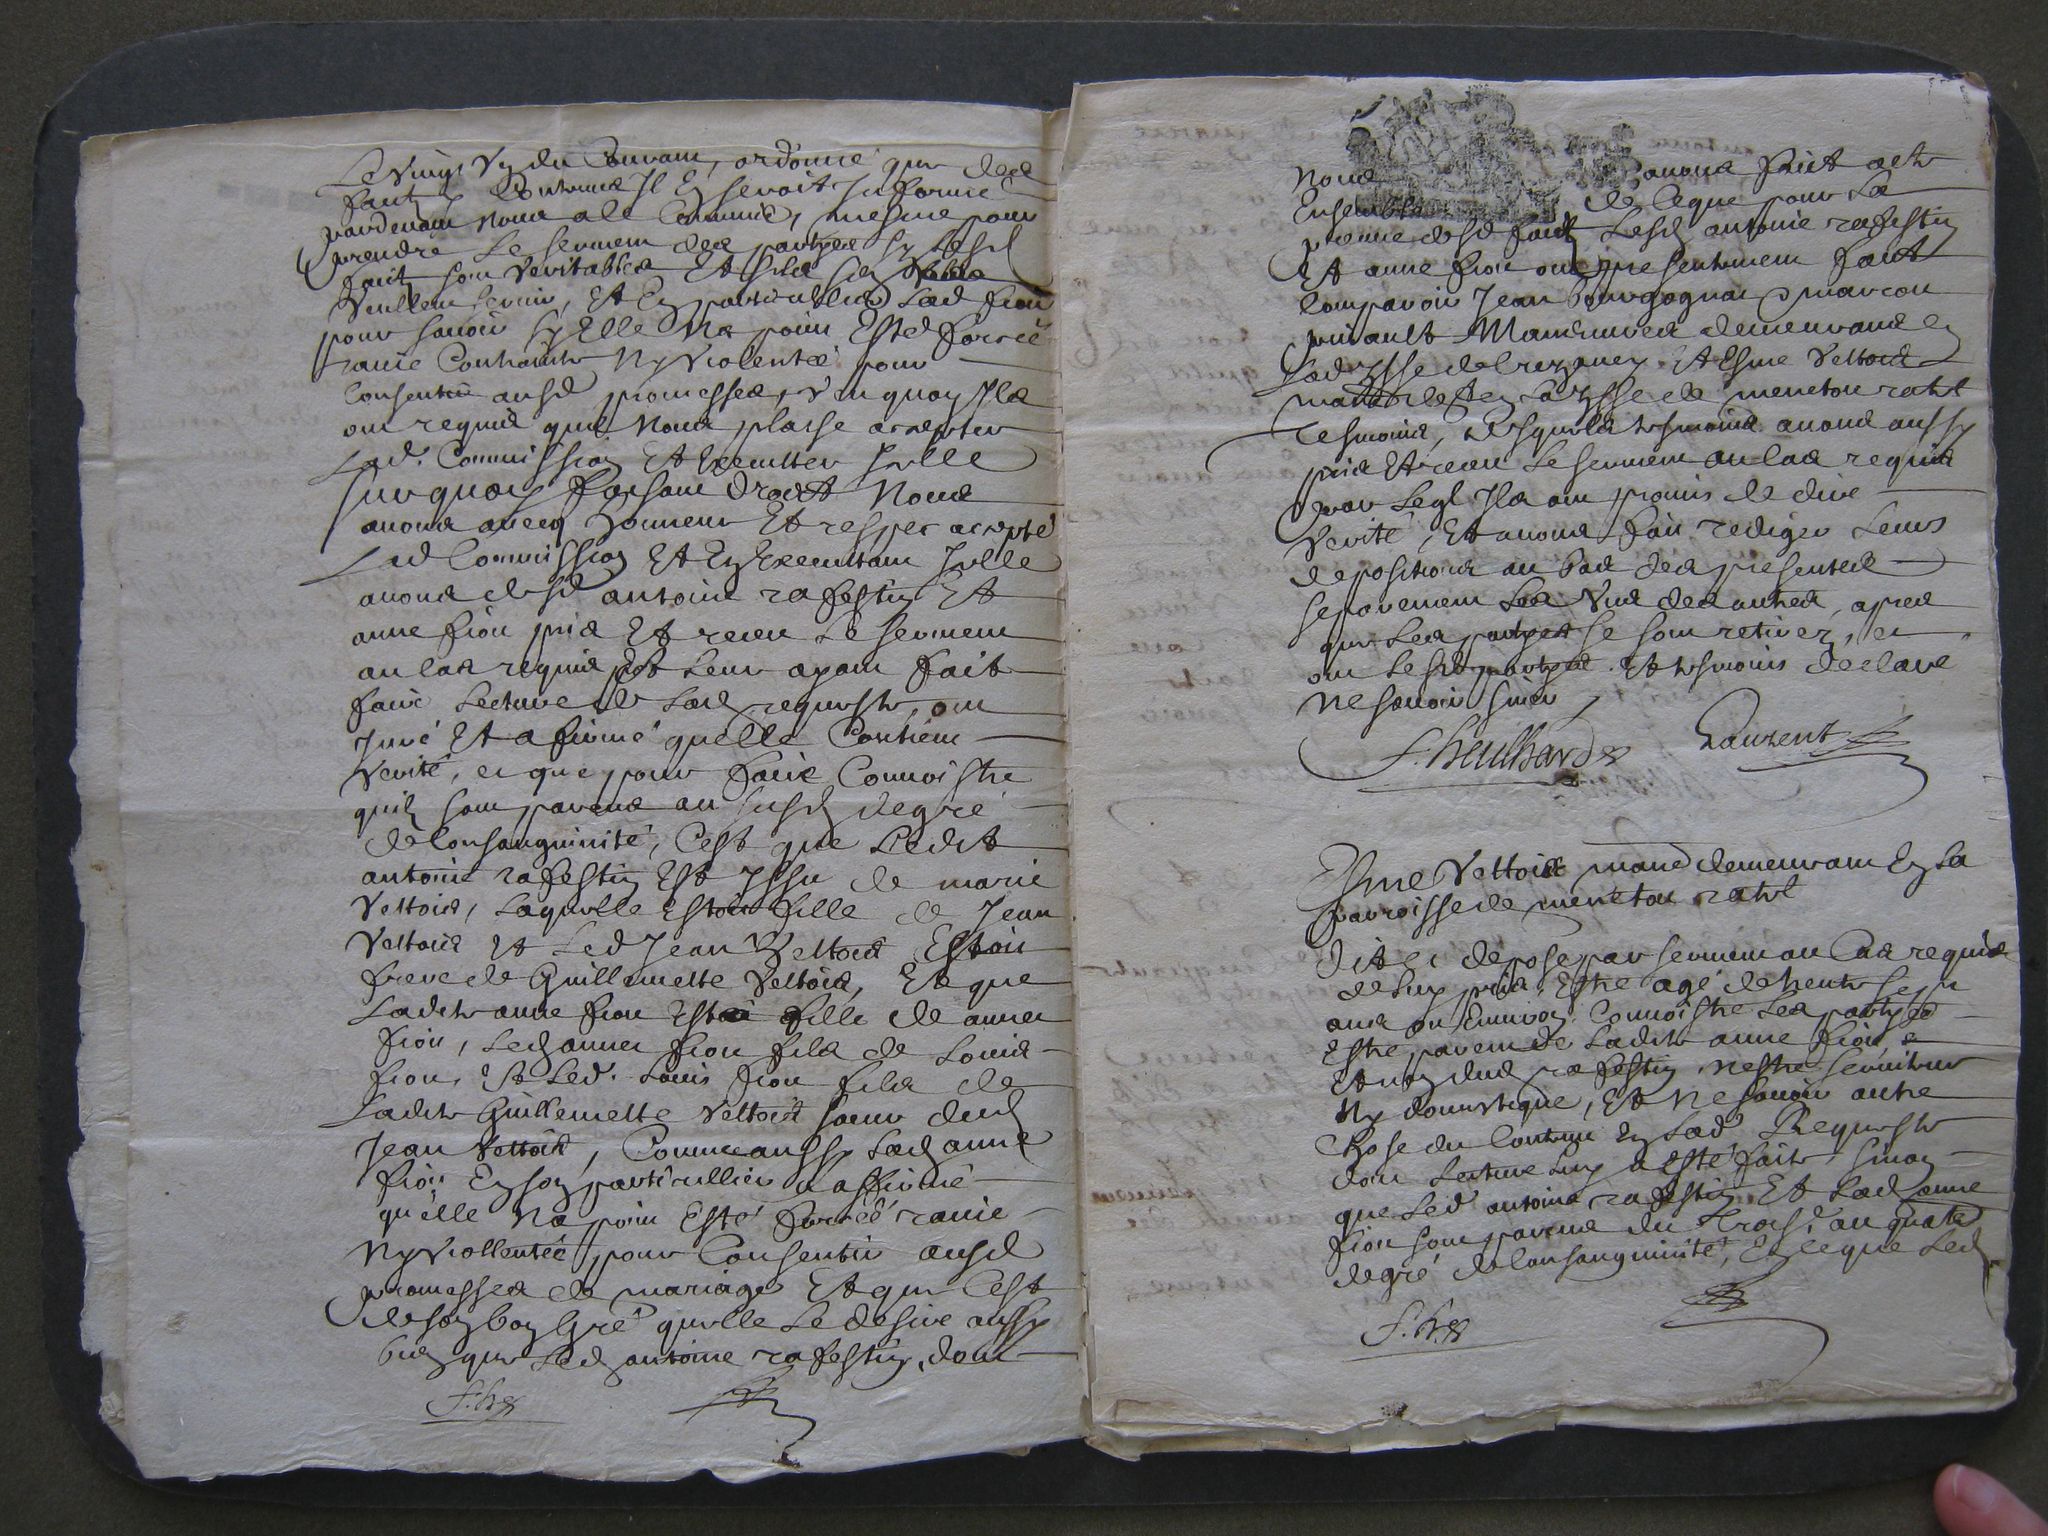 Le vingt du Couvant, ordonne que des
faitz Contenus Il En seroit Informé
pardevant Nous a ce Commis, mesme pour
prendre Le serment des partyes sy Lesd
faitz son veritables Et silz sen
veullent servir, Et En particullier Lad fion
pour savoir sy Elle Na poin Esté forcée
ravie Contrainte Ny violentée pour
Consentir ausd promesses, Surquoy Ils
ont requis quil Nous plaise accepter
Lad. Commission Et Executter Jcelle
Surquoy faisant droict Nous
avons avecq honneur Et respec accepté
Lad Commission Et En Executant Jcelle
avons desd antoine rafestin Et
anne fion pris Et receu Le serment
au cas requis Et Leur ayant fait
faire Lecture de Lad requeste, on
Juré Et afirmé quelle Contient
verité, et que pour faire Connoistre
quilz sont parens au susd degré
de Consanguinité, Cest que Ledit
antoine rafestin Est Jssu de marie
Vettois, Laquelle Estoit fille de Jean
Vettois Et Led Jean Vettois Estoit
frere de Guillemette Vettois, Et que
Ladite anne fion Est fille de annet
fion, Led annet fion fils de Louis
fion, Et Led. Louis fion fils de
Ladite Guillemette Vettois soeur dud
Jean Vettois, Comme aussy Lad anne
fion En son particullier a affirmé
qu'elle Na poin Esté forcée ravie
Ny viollentée pour Consentir ausd
promesses de mariage Et que Cest
de son bon Gré quelle Le desire aussy
bien que Led antoine rafestin, dont
Nous avons fait acte
Ensemble de Ceque pour La
preuve desd faitz Lesd antoine rafestin
Et anne fion ont presentement fait
Comparoir Jean bourgognon marcou
pinault Manoeuvres demeurans En
Lad psse de Crezancy Et Esme Vettois
man en La psse de menetou ratel
Tesmoins, desquels tesmoins avons aussy
pris Et receu Le serment au cas requis
par Leql Ils ont promis de dire
verité, Et avons fait rediger Leurs
depositions au bas des presentes
separement Les Uns des autres, apres
que Les partyes se sont retirez, et
ont Lesd partyes Et tesmoins declaré
Ne savoir signer
f. heulhard
Laurent
Esme Vettois man demeurant En La
parroisse de menetou ratel
Dit et depose par serment au Cas requis
de Luy pris, Estre agé de trente sept
ans ou Environ. Connoistre Les partyes
Estre parent de Ladite anne fion
Et non dud rafestin, nestre serviteur
Ny domestique, Et Ne savoir autre
Chose du Contenu En Lad Requeste
dont Lecture Luy a Esté faite, sinon
que Led antoine rafestin Et Lad anne
fion sont parens du trois au quatre
degré de Consanguinité, En ce que Led
f. h.